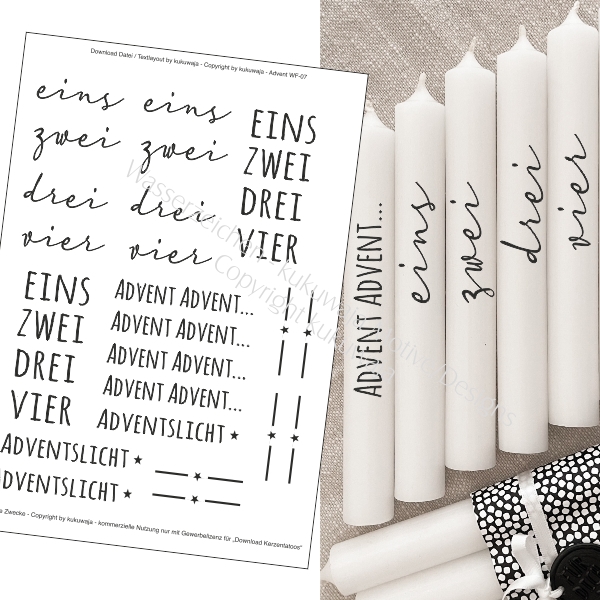 Download Datei / Textlayout by kukuwaja - Copyright by kukuwaja - Advent WF-07
eins eins EINS
zwei zwei ZWEI
drei drei DREI
vier vier VIER
EINS
ZWEI
DREI
VIER
ADVENT ADVENT...
ADVENT ADVENT...
ADVENT ADVENT...
ADVENT ADVENT...
ADVENTSLICHT
ADVENTSLICHT
ADVENTSLICHT
Zwecke - Copyright by kukuwaja - kommerzielle Nutzung nur mit Gewerbelizenz für „Download Kerzentatoos"
Wasserzeichen kukuwaja Creative Designs
Copyright kukuwaja
ADVENT ADVENT...
eins
zwei
drei
vier